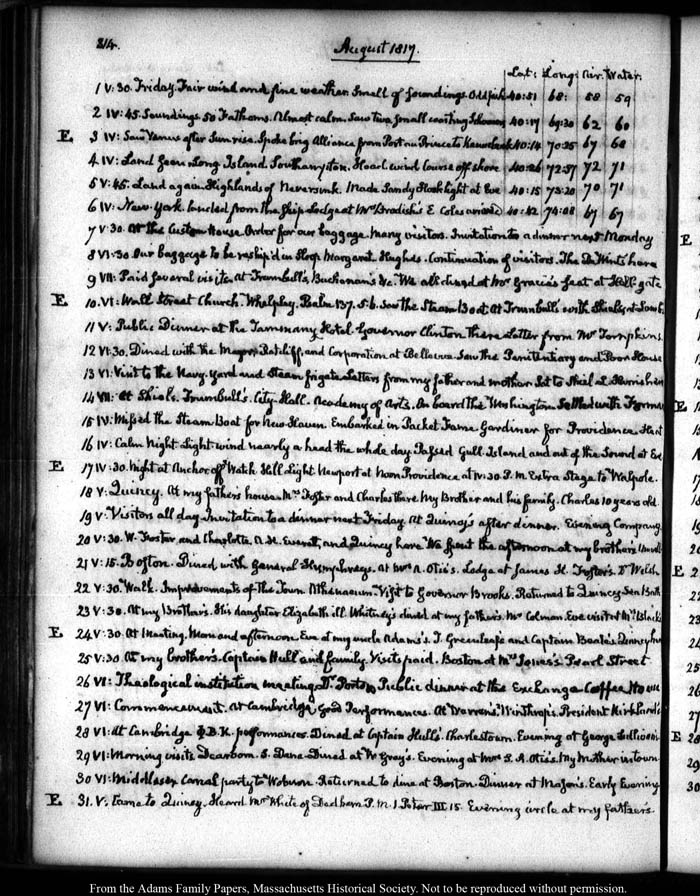 214.
August 1817.
Lat: Long: Air. Water.
1 V:30. Friday. Fair wind and fine weather. Smell of soundings. Odd fish 40:51 68: 58 59
2 IV:45. Soundings 50 Fathoms. Almost calm. Saw two small coasting Schooners 40:17 69:30 62 60
E 3 IV: Saw Venus after Sun rise. Spoke brig Alliance from Port au Prince to Kennebunk 40:14 70:25 67 68
4 IV: Land seen Long Island. Southampton. Hard wind course off shore 40:26 72:57 72 71
5 V:45. Land again. Highlands of Neversink. Made Sandy Hook light at Eve 40:15 73:20 70 71
6 IV: New-York landed from the Ship. Lodge at Mrs Bradish's E Coles arrived 40:42 74:08 67 67
7 V:30. At the Custom House. Order for our baggage. Many visitors. Invitation to a dinner next Monday
8 VI:30. Our baggage to be reship'd in Sloop Margaret. Hughes. Continuation of visitors. The De Wints here
9 VII: Paid several visits. At Trumbull's, Buchanan's &c. We all dined at Mr Gracie's seat at Hell-gate
E 10. VI: Wall Street Church. Whelpley. Psalm 137. 5.6. Saw the Steam Boat. At Trumbull's with
11 V: Public Dinner at the Tammany Hotel. Governor Clinton there Letter from Mr Tompkins
12 VI:30. Dined with the Mayor, Ratcliff, and Corporation at Bellevue. Saw the Penitentiary and Poor House
13 VI: Visit to the Navy-Yard and Steam frigate. Letters from my father and mother. Sat to Shiel at
14 VII: At Shiels. Trumbull's. City-Hall. Academy of Arts. On board the Washington. Settled with
15 IV: Missed the Steam Boat for New-Haven. Embarked in Packet Fame Gardiner for Providence.
16 IV: Calm Night. Light wind nearly a head the whole day. Passed Gull Island and out of the Sound at Eve
E 17 IV:30. Night at Anchor off Watch Hill Light. Newport at Noon Providence at IV:30 P.M. Extra Stage to Walpole.
18 V: Quincy. At my father's house. Mrs Foster and Charles there My Brother and his family. Charles 10 years old.
19 V: Visitors all day. Invitation to a dinner next Friday. At Quincy's after dinner. Evening Company
20 V:30. W. Foster, and Charlotte, A. H. Everett, and Quincy here We spent the afternoon at my brother's
21 V:15. Boston. Dined with General Humphreys. at Mrs A. Otis's. Lodge at James H. Foster's. Dr Welsh
22 V:30. Walk. Improvements of the Town. Athenaeum. Visit to Governor Brooks. Returned to Quincy. Sea Bath
23 V:30. At my Brother's. His daughter Elizabeth ill. Whitney's dined at my father's. Mr Colman. Eve visit at Mrs Black's
E 24 V:30. At Meeting. Morn and afternoon. Eve at my uncle Adams's. T. Greenleafs and Captain Beale's.
25 V:30. At my brother's. Captain Hull and family. Visits paid. Boston at Mrs Jones's Pearl Street
26 VI: Theological institution meeting. Dr Porter Public dinner at the Exchange Coffee House
27 VI: Commencement. At Cambridge good Performances. At Warren's. Winthrop's. President Kirkland's
28 VI: At Cambridge Φ.B.K. performances. Dined at Captain Hull's. Charlestown. Evening at George Sullivan's
29 VI: Morning visits Dearborn. S. Dana. Dined at W. Gray's. Evening at Mrs S. A. Otis's. My Mother in town
30 VI: Middlesex Canal party to Woburn. Returned to dine at Boston. Dinner at Mason's. Early Evening
E 31. V. Came to Quincy. Heard Mr White of Dedham P.M. 1. Peter III. 15. Evening circle at my father's.
From the Adams Family Papers, Massachusetts Historical Society. Not to be reproduced without permission.